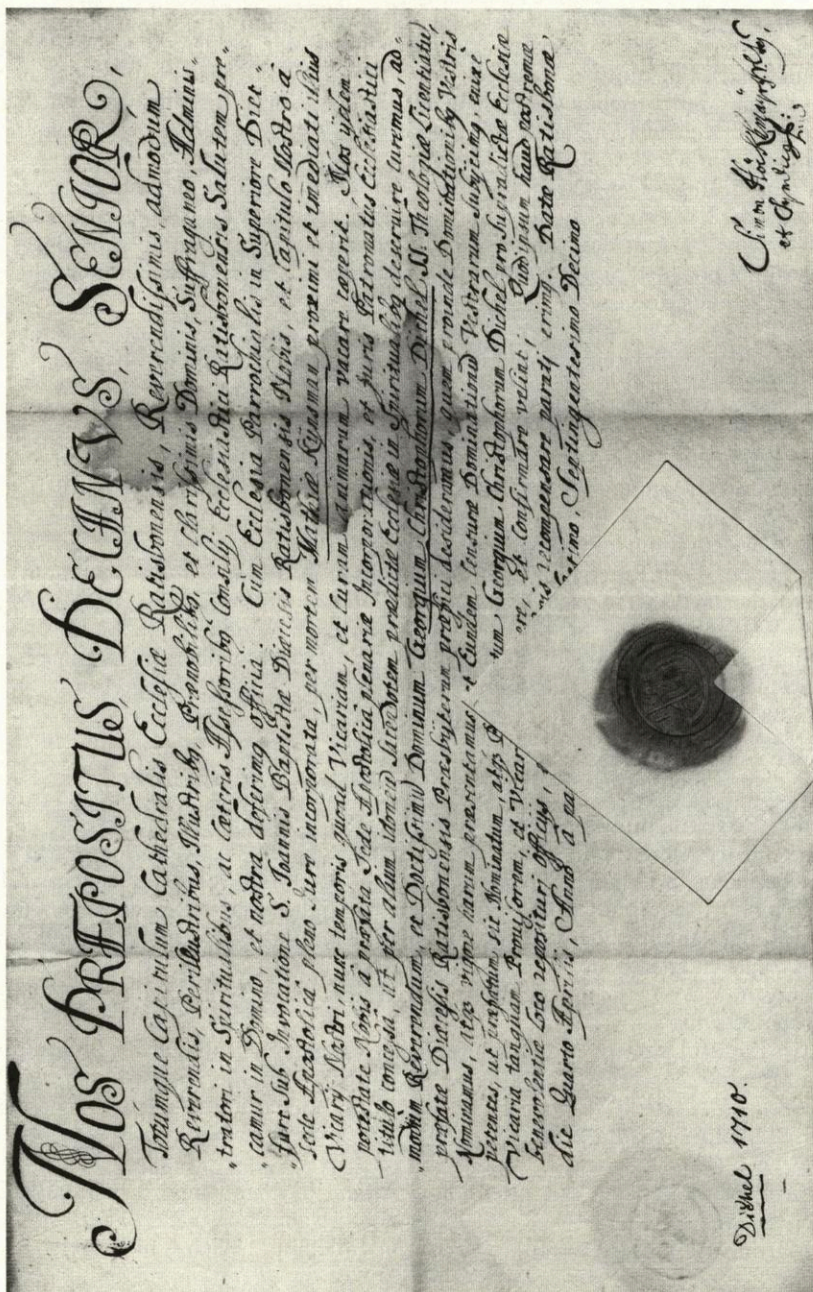 NOS PRÆPOSITUS, DECANVS, SENIOR,
Totumque Capitulum Cathedralis Ecclesiæ Ratisbonensis, Reverendissimis, admodum
Reverendis, Perillustribus, Illustribus, Prænobilibus, et Clarissimis Dominis, Suffraganeo, Adminis-
"tratori in Spiritualibus, ac Cæteris Assessoribus Consilij Ecclesiastici Ratisbonensis Salutem pre-
"camur in Domino, et nostra deferimus officia. Cum Ecclesia Parrochialis in Superiore Diet-
"furt Sub Invocatione S. Joannis Baptistæ Diœcesis Ratisbonensis Nobis, et Capitulo Nostro à
Sede Apostolica pleno Jure incorporata, per mortem Mathiæ Künsman proximi et imediati illius
Vicarij Nostri, nunc temporis quoad Vicariam, et Curam animarum vacare cœperit. Nos ijdem
potestate Nobis à præfata Sede Apostolica plenariæ Incorporationis, et Juris Patronatus Ecclesiastici
titulo concessa, ut per alium idoneum Sacerdotem prædictæ Ecclesiæ in Spiritualibus deservire curemus, ad-
"modum Reverendum, et Doctissimum Dominum Georgium Christophorum Dichel SS. Theologiæ Licentiatum,
præfatæ Diœcesis Ratisbonensis Presbyterum præfici desideramus, quem proinde Dominationibus Vestris
Nominamus, atque vigore harum præsentamus, et Eundem Censuræ Dominationum Vestrarum subijcimus, enixe
petentes, ut præfatum sic Nominatum, atque
um Georgium Christophorum Dichel pro supradictæ Ecclesiæ
Vicaria tanquam Provisorem, et Vicar
et Confirmare velint; Quod ipsum haud postremæ
benevolentiæ loco reposituri officijs,
recompensare parati erimus. Datæ Ratisbonæ,
die Quarto Aprilis, Anno à
Septingentesimo Decimo
Simon
et Syndicus
Dichel 1710.